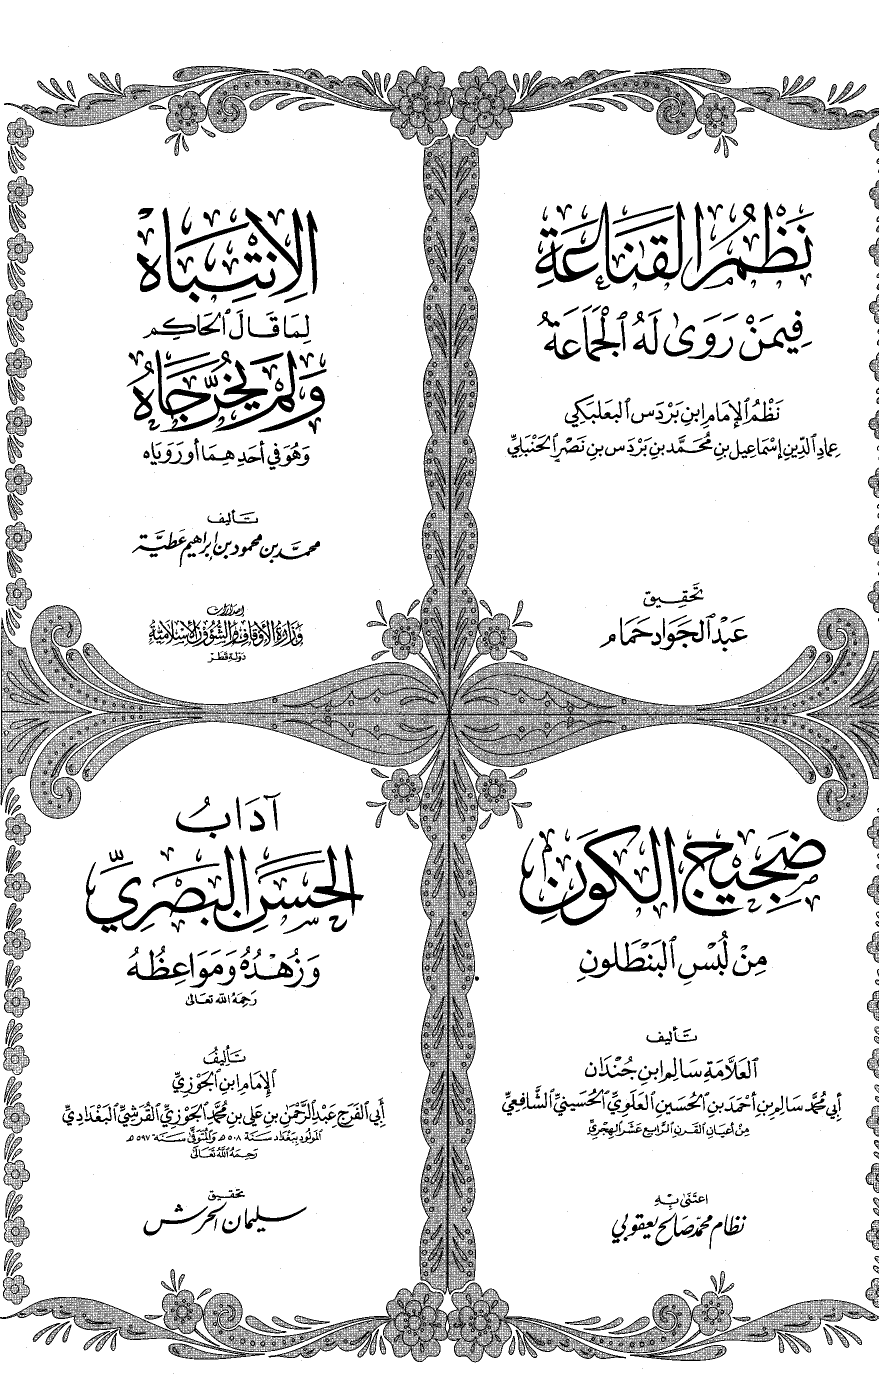 نَظْمُ القَنَاعَةِ
فِيمَنْ رَوَى لَهُ الجَمَاعَةُ
نَظْمُ الإِمَامِ ابنِ بَرْدَس البَعلبَكِي
عِمَادِ الدِّينِ إِسْمَاعِيل بنِ مُحَمَّد بنِ بَرْدَس بنِ نَصْرٍ الحَنْبَليِّ
تَحقِيق
عَبْد الجَوَاد حَمَام
الِانْتِبَاهْ
لِمَا قَالَ الحَاكِم
وَلَمْ يُخَرِّجَاهُ
وَهُوَ فِي أَحَدِهِمَا أَو رَوَيَاه
تَأليف
محمّد بن محمود بن إبراهيم عَطيّة
إصدارات
وزارة الأوقاف والشؤون الإسلامية
دولة قطر
ضَجِيج الكَونِ
مِنْ لُبْسِ البَنْطَلونِ
تَأليف
العَلَّامَةِ سَالِم ابنِ جُنْدَان
أَبِي مُحَمَّد سَالِم بنِ أَحْمَد بنِ الحُسَين العَلَويِّ الحُسَينيِّ الشَّافِعيِّ
مِنْ أَعيَانِ القَرنِ الرَّابِع عَشَر الهِجْرِيِّ
اعتَنَى بِهِ
نظام محمّد صَالح يَعقوبي
آدَابُ
الحَسَنِ البَصْرِيِّ
وَزُهْدُهُ وَمَوَاعِظُهُ
رَحِمَهُ اللّه تَعَالى
تَأليفُ
الإِمَام ابنِ الجَوْزِيِّ
أَبِي الفَرَج عَبْدِ الرَّحمٰنِ بنِ عَلي بنِ مُحَمَّد الجَوْزِيِّ القُرَشيِّ البَغْدَاديِّ
المَولُود بِبَغْدَاد سَنَة ٥٠٨ هـ وَالمُتَوَفَّى سَنَة ٥٩٧ هـ
رَحِمَهُ اللّهُ تَعَالَى
تحقيق
سليمان الحرش